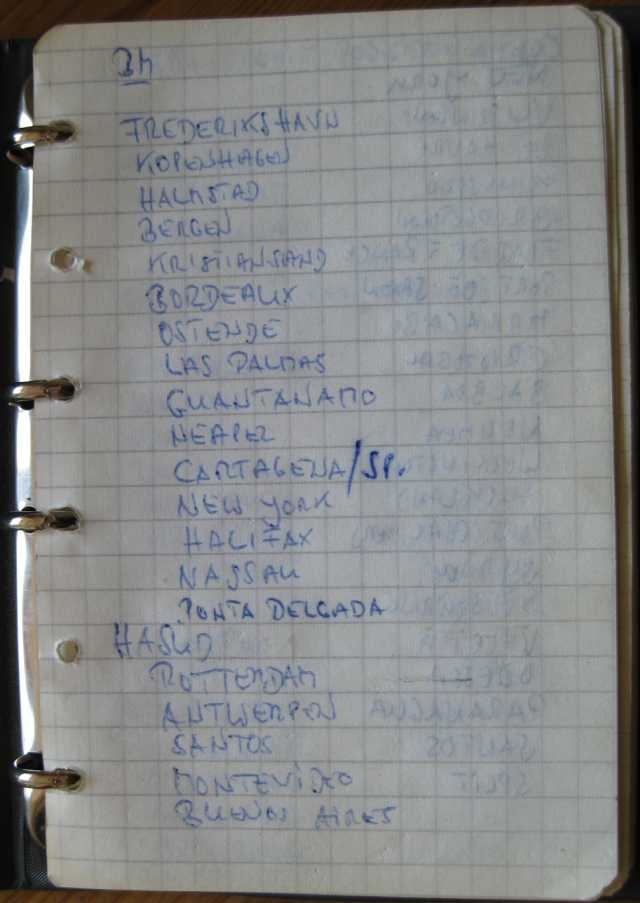 FREDERIKSHAVN
KOPENHAGEN
HALMSTAD
BERGEN
KRISTIANSAND
BORDEAUX
OSTENDE
LAS PALMAS
GUANTANAMO
NEAPEL
CARTAGENA/SP.
NEW YORK
HALIFAX
NASSAU
PONTA DELGADA
ROTTERDAM
ANTWERPEN
SANTOS
MONTEVIDEO
BUENOS AIRES